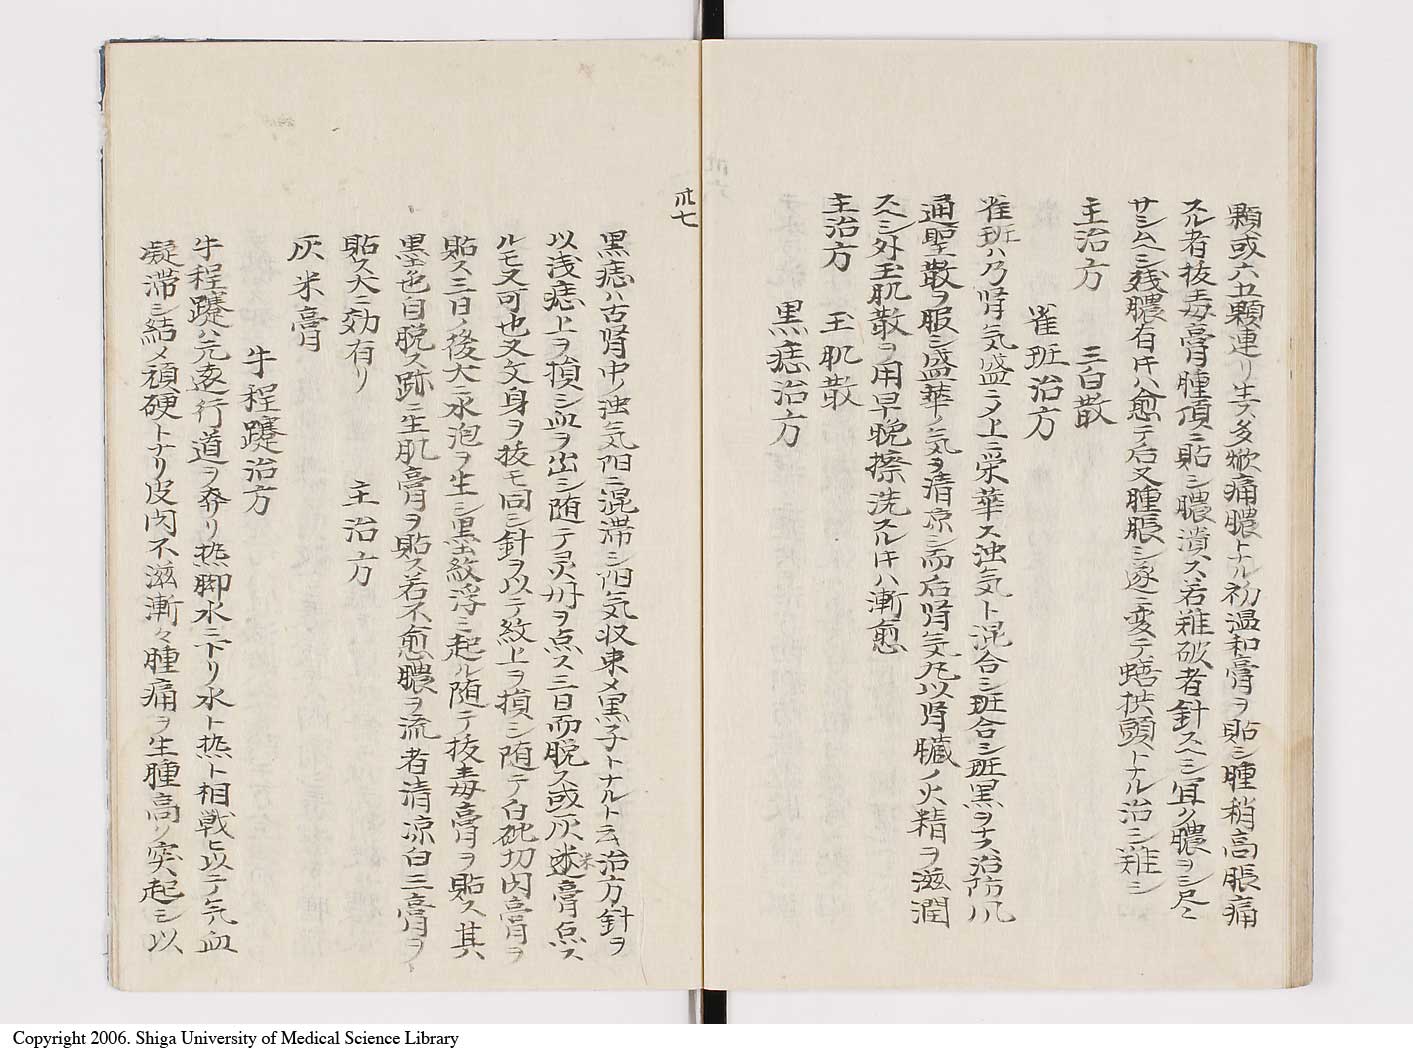 顆或六五顆連リ生ス多焮痛膿トナル初温和膏ヲ貼シ腫稍高脹痛
スル者抜毒膏腫頂ニ貼シ膿潰ス若難破者針スヘシ宜ク膿ヲシ尽ミ
サシムヘシ残膿有圷ハ愈テ后又腫脹シ遂ニ変テ蟮拱頭トナル治シ難シ
主治方 三白散
雀班治方
雀班ハ乃腎气盛ニメ上ニ栄華ス浊气ト混合シ班合シ班黒ヲナス治防风
通聖散ヲ服シ盛華ノ气ヲ清凉シ而后腎气丸以腎臓ノ火精ヲ滋潤
スヘシ外玉肌散ヲ用早晩擦洗スル圷ハ漸愈
主治方 玉肌散
黒痣治方
卅七
黒痣ハ古腎中ノ浊气阳ニ混滞シ阳气収束メ黒子トナルト云治方針ヲ
以浅痣上ヲ損シ血ヲ出シ随テ灵丹ヲ点ス三日而脱ス或灰米膏点ス
ルモ又可也又文身ヲ抜モ同シ針ヲ以テ紋上ヲ損シ随テ白砒切肉膏ヲ
貼ス三日ノ後大ニ水泡ヲ生シ黒紋浮ミ起ル随テ抜毒膏ヲ貼ス其
墨色自脱ス跡ニ生肌膏ヲ貼ス若不愈膿ヲ流者清凉白三膏ヲ
貼ス大ニ効有リ 主治方
灰米膏
牛程蹇治方
牛程蹇ハ元遠行道ヲ奔リ热脚水ニ下リ水ト热ト相戦ヒ以テ气血
凝滞シ結メ頑硬トナリ皮肉不滋漸々腫痛ヲ生腫高ク突起シ以